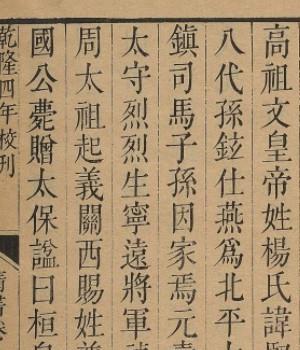 高祖文皇帝姓楊氏諱
八代孫鉉仕燕爲北平
鎭司馬子孫因家焉元
太守烈烈生寧遠將軍
周太祖起義關西賜姓
國公薨贈太保諡曰桓
乾隆四年校刊